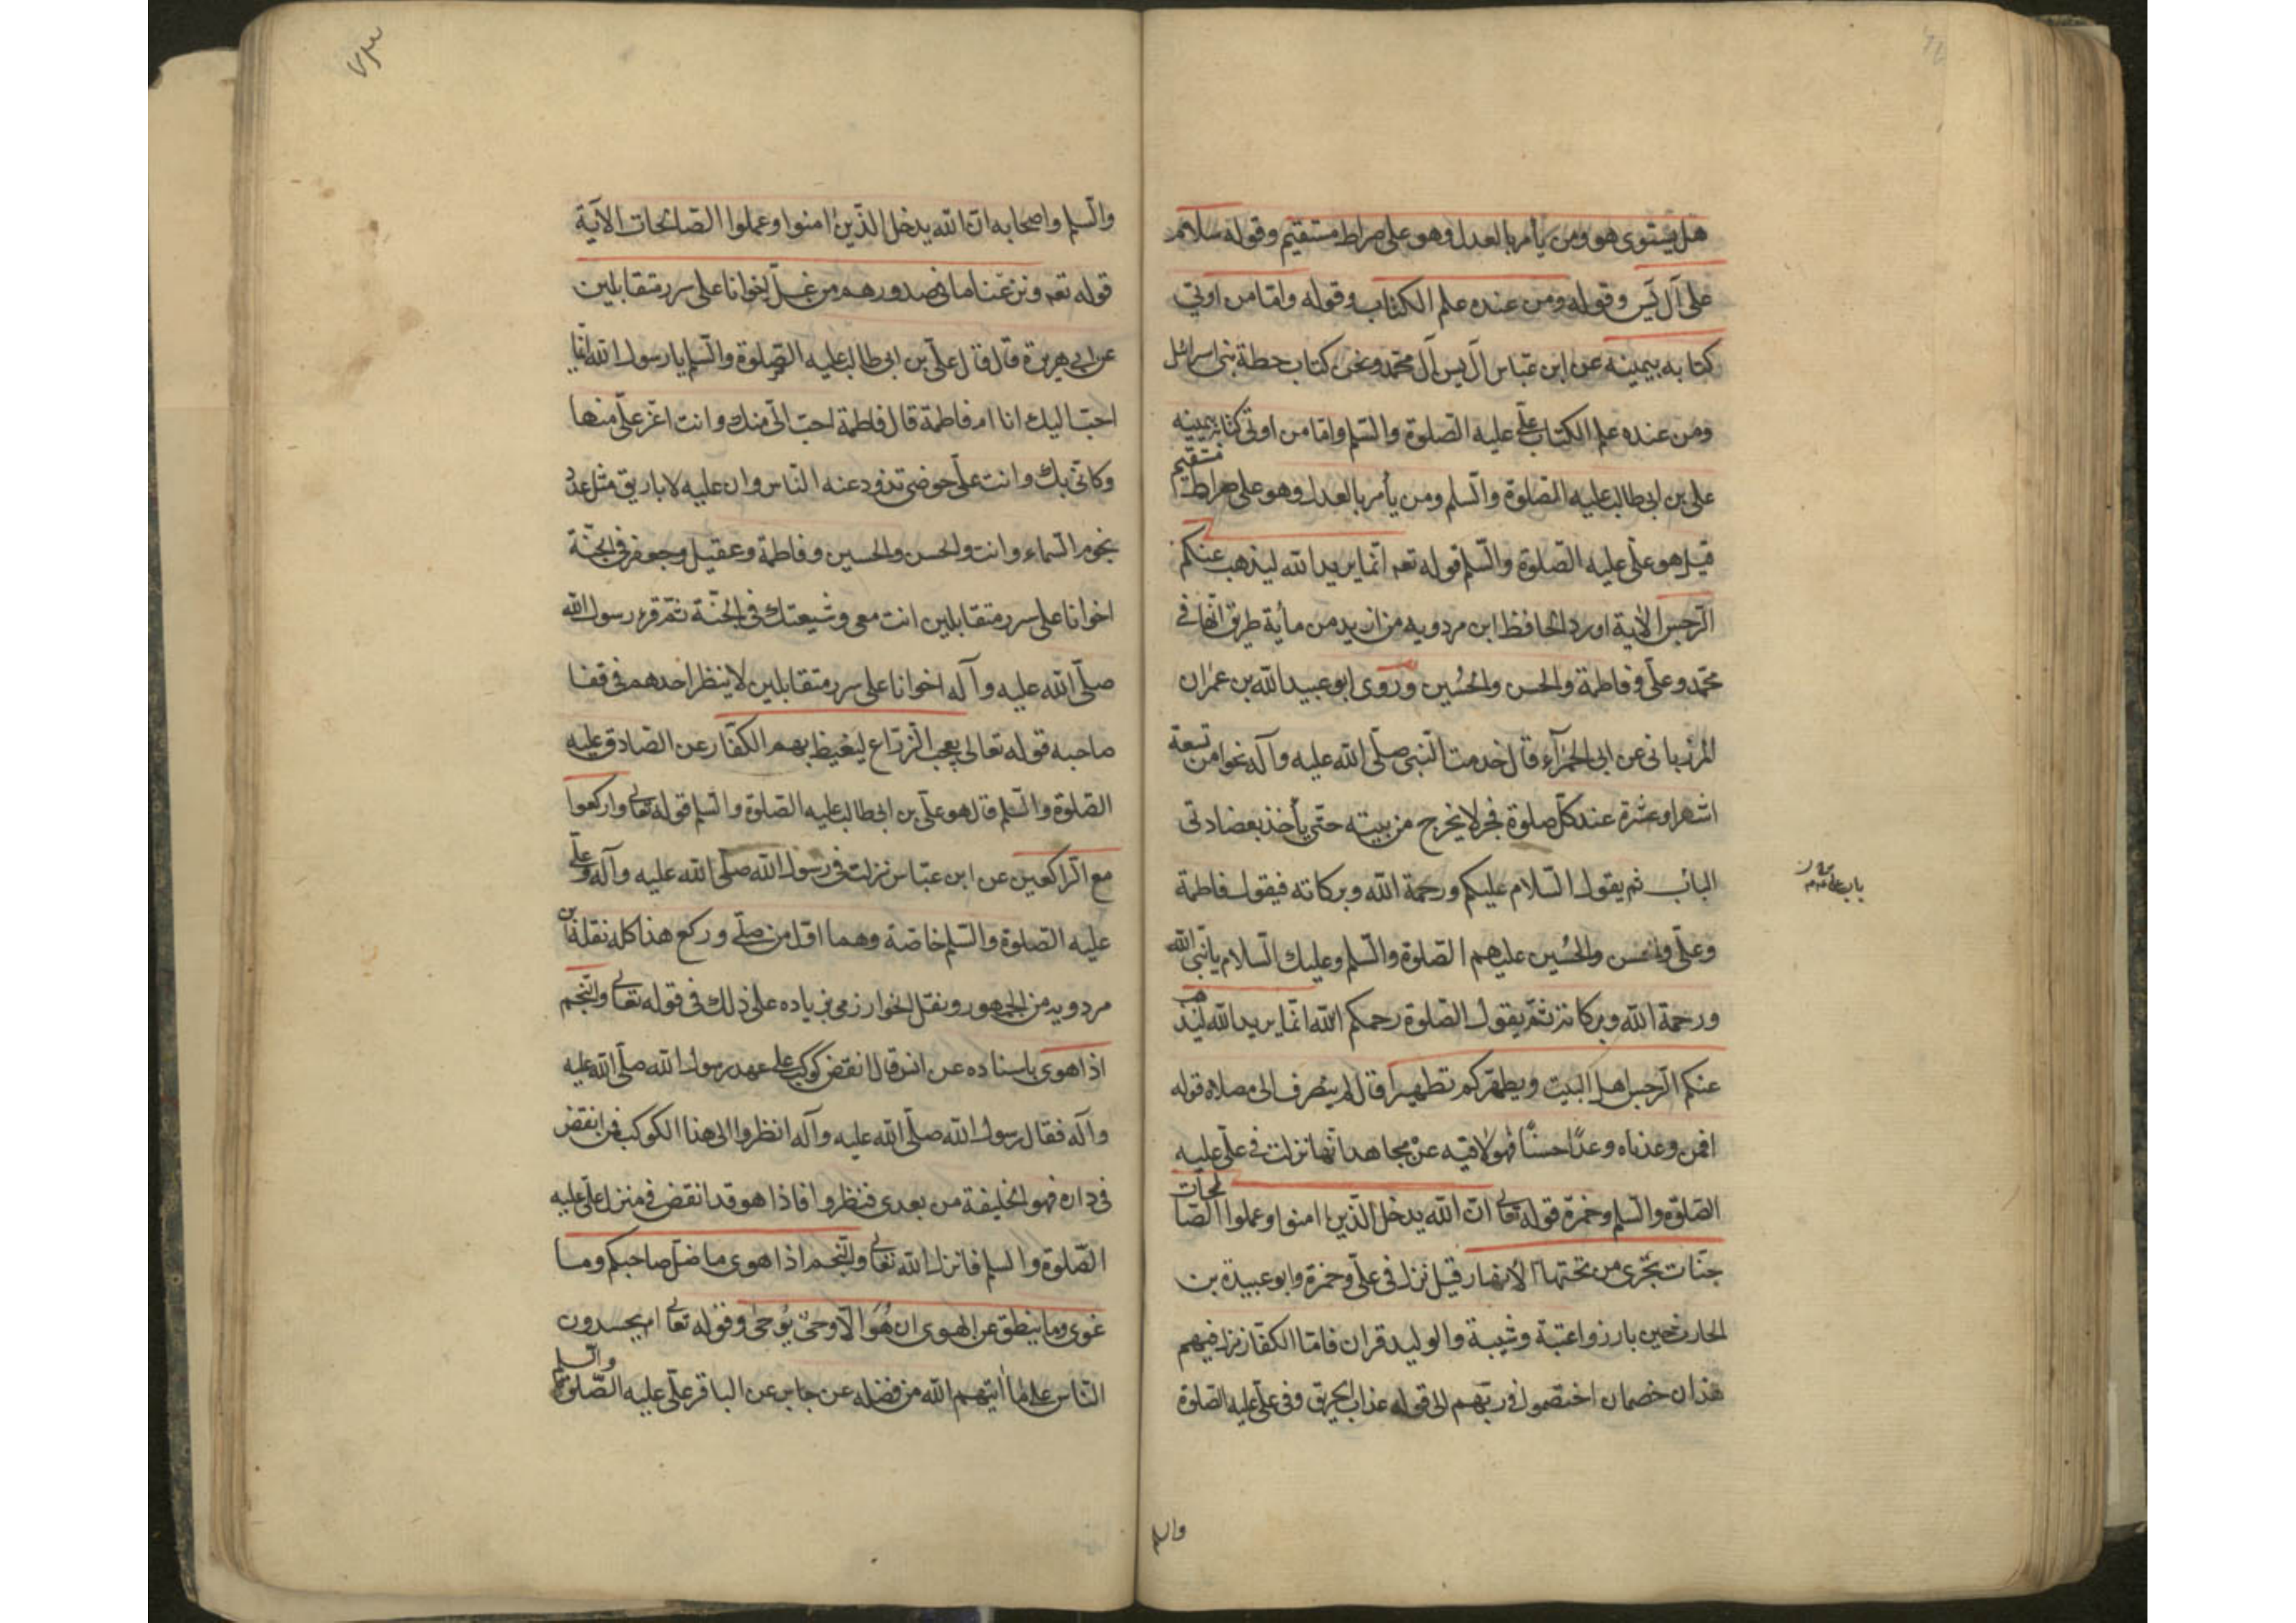 هل يستوى هو ومن يأمر بالعدل وهو على صراط مستقيم وقوله سلام
على آل يس وقوله ومن عنده علم الكتاب وقوله وامّا من اوتي
كتابه بيمينه عن ابن عبّاس آل يس آل محمّد ونحن كتاب حطة بنى اسرائل
ومن عنده علم الكتاب علّى عليه الصلوة والسّلم وامّا من اوتى كتابه بيمينه
على بن ابى طالب عليه الصلوة والسّلم ومن يأمر بالعدل وهو على صراط مستقيم
قيل هو علّى عليه الصّلوة والسّلم قوله تعه انّما يريد الله ليذهب عنكم
الرّجس الآية اورد الحافظ ابن مردويه من ازيد من مأية طريق انّها فى
محمّد وعلّى وفاطمة والحسن والحُسين وروى ابو عبيد الله بن عمران
المرزبانى عن ابى الحمرآء قال خدمت النّبى صلّى الله عليه وآله نحوا من تسعة
اشهر او عشرة عند كلّ صلوة فجر لا يخرج من بيته حتّى يأخذ بعضادتى
الباب ثم يقول السّلام عليكم ورحمة الله وبركاته فيقول فاطمة
باب علّى
وعلّى والحسن والحُسين عليهم الصلوة والسّلم وعليك السّلام يا نبّى الله
ورحمة الله وبركاته ثمّ يقول الصّلوة رحمكم الله انّما يريد الله ليذهب
عنكم الرّجس اهل البيت ويطهّركم تطهيرا قال ثم ينصرف الى مصلاه قوله
افمن وعدناه وعدًا حسنًا فهو لاقيه عن مجاهد انّها نزلت فى علّى عليه
الصّلوة والسّلم وحمزة قوله تعالى انّ الله يدخل الّذين امنوا وعملوا الصّالحات
جنّات تجرى من تحتها الانهار قيل نزل فى علّى وحمزة وابو عبيدة بن
الحارث حين بارزوا عتبة وشيبة والوليد قران فامّا الكفّار نزل فيهم
هذان خصمان اختصموا فى ربّهم الى قوله عذاب الحريق وفى علّى عليه الصّلوة
والسلم
والسّلم واصحابه انّ الله يدخل الّذين امنوا وعملوا الصّالحات الآية
قوله تعه ونزعنا ما فى صدورهم من غلّ اخوانا على سرر متقابلين
عن ابى هريرة قال قال علّى بن ابى طالب عليه الصّلوة والسّلم يا رسول الله ايّنا
احبّ اليك انا ام فاطمة قال فاطمة احبّ الىّ منك وانت اعزّ علّى منها
وكانّى بك وانت على حوضى تذود عنه النّاس وان عليه لاباريق مثل عدد
نجوم السّماء وانت والحسن والحسين وفاطمة وعقيل وجعفر فى الجنّة
اخوانا على سرر متقابلين انت معى وشيعتك فى الجنّة ثمّ قرء رسول الله
صلّى الله عليه وآله اخوانا على سرر متقابلين لا ينظر احدهم فى قفا
صاحبه قوله تعالى يعجب الزّرّاع ليغيظ بهم الكفّار عن الصّادق عليه
الصّلوة والسّلم قال هو علّى بن ابى طالب عليه الصّلوة والسّلم قوله تعالى واركعوا
مع الرّاكعين عن ابن عبّاس نزلت فى رسول الله صلّى الله عليه وآله وعلّى
عليه الصّلوة والسّلم خاصّة وهما اوّل من صلّى وركع هذا كله نقله ابن
مردويه من الجمهور ونقل الخوارزمى بزياده على ذلك فى قوله تعالى والنّجم
اذا هوى باسناده عن انس قال انقضّ كوكب على عهد رسول الله صلّى الله عليه
وآله فقال رسول الله صلّى الله عليه وآله انظروا الى هذا الكوكب فمن انقض
فى داره فهو الخليفة من بعدى فنظروا فاذا هو قد انقض فى منزل علّى عليه
الصّلوة والسلم فانزل الله تعالى والنّجم اذا هوى ما ضلّ صاحبكم وما
غوى وما ينطق عن الهوى ان هُوَ الّا وحىٌ يُوحى وقوله تعالى ام يحسدون
النّاس على ما آتيهم الله من فضله عن جابر عن الباقر علّى عليه الصّلوة والسلم